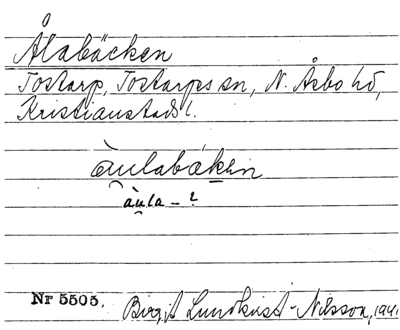 Ålabäcken
Tostarp, Tostarps sn, N. Åsbo hd,
Kristianstads l.
àu̯labákęn
àu̯la – ?
Nr 5505. Birgit Lundkvist-Nilsson, 1941